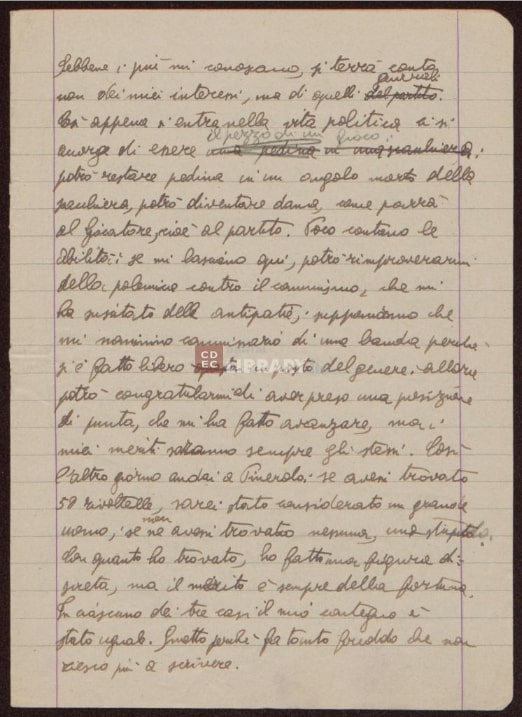 Sebbene i più mi conoscano, si terrà conto
generali
non dei miei interessi, ma di quelli del partito.
Così appena si entra nella vita politica ci si
il pezzo di un gioco
accorge di essere una pedina in una scacchiera:
potrò restare pedina in un angolo morto della
scacchiera, potrò diventare dama, come parrà
al giocatore, cioè al partito. Poco contano le
abilità: se mi lasciano qui, potrò rimproverarmi
della polemica contro il comunismo, che mi
ha suscitato delle antipatie; supponiamo che
mi nominino commissario di una banda perché
si è fatto libero un posto del genere: allora
potrò congratularmi di aver preso una posizione
di punta, che mi ha fatto avanzare, ma i
miei meriti saranno sempre gli stessi. Così
l'altro giorno andai a Pinerolo: se avessi trovato
50 rivoltelle, sarei stato considerato un grande
uomo; se non ne avessi trovato nessuna, uno stupido.
Con quanto ho trovato, ho fatto una figura di-
screta, ma il merito è sempre della fortuna.
In ciascuno dei tre casi il mio contegno è
stato uguale. Smetto perché fa tanto freddo che non
riesco più a scrivere.
CDEC LIBRARY